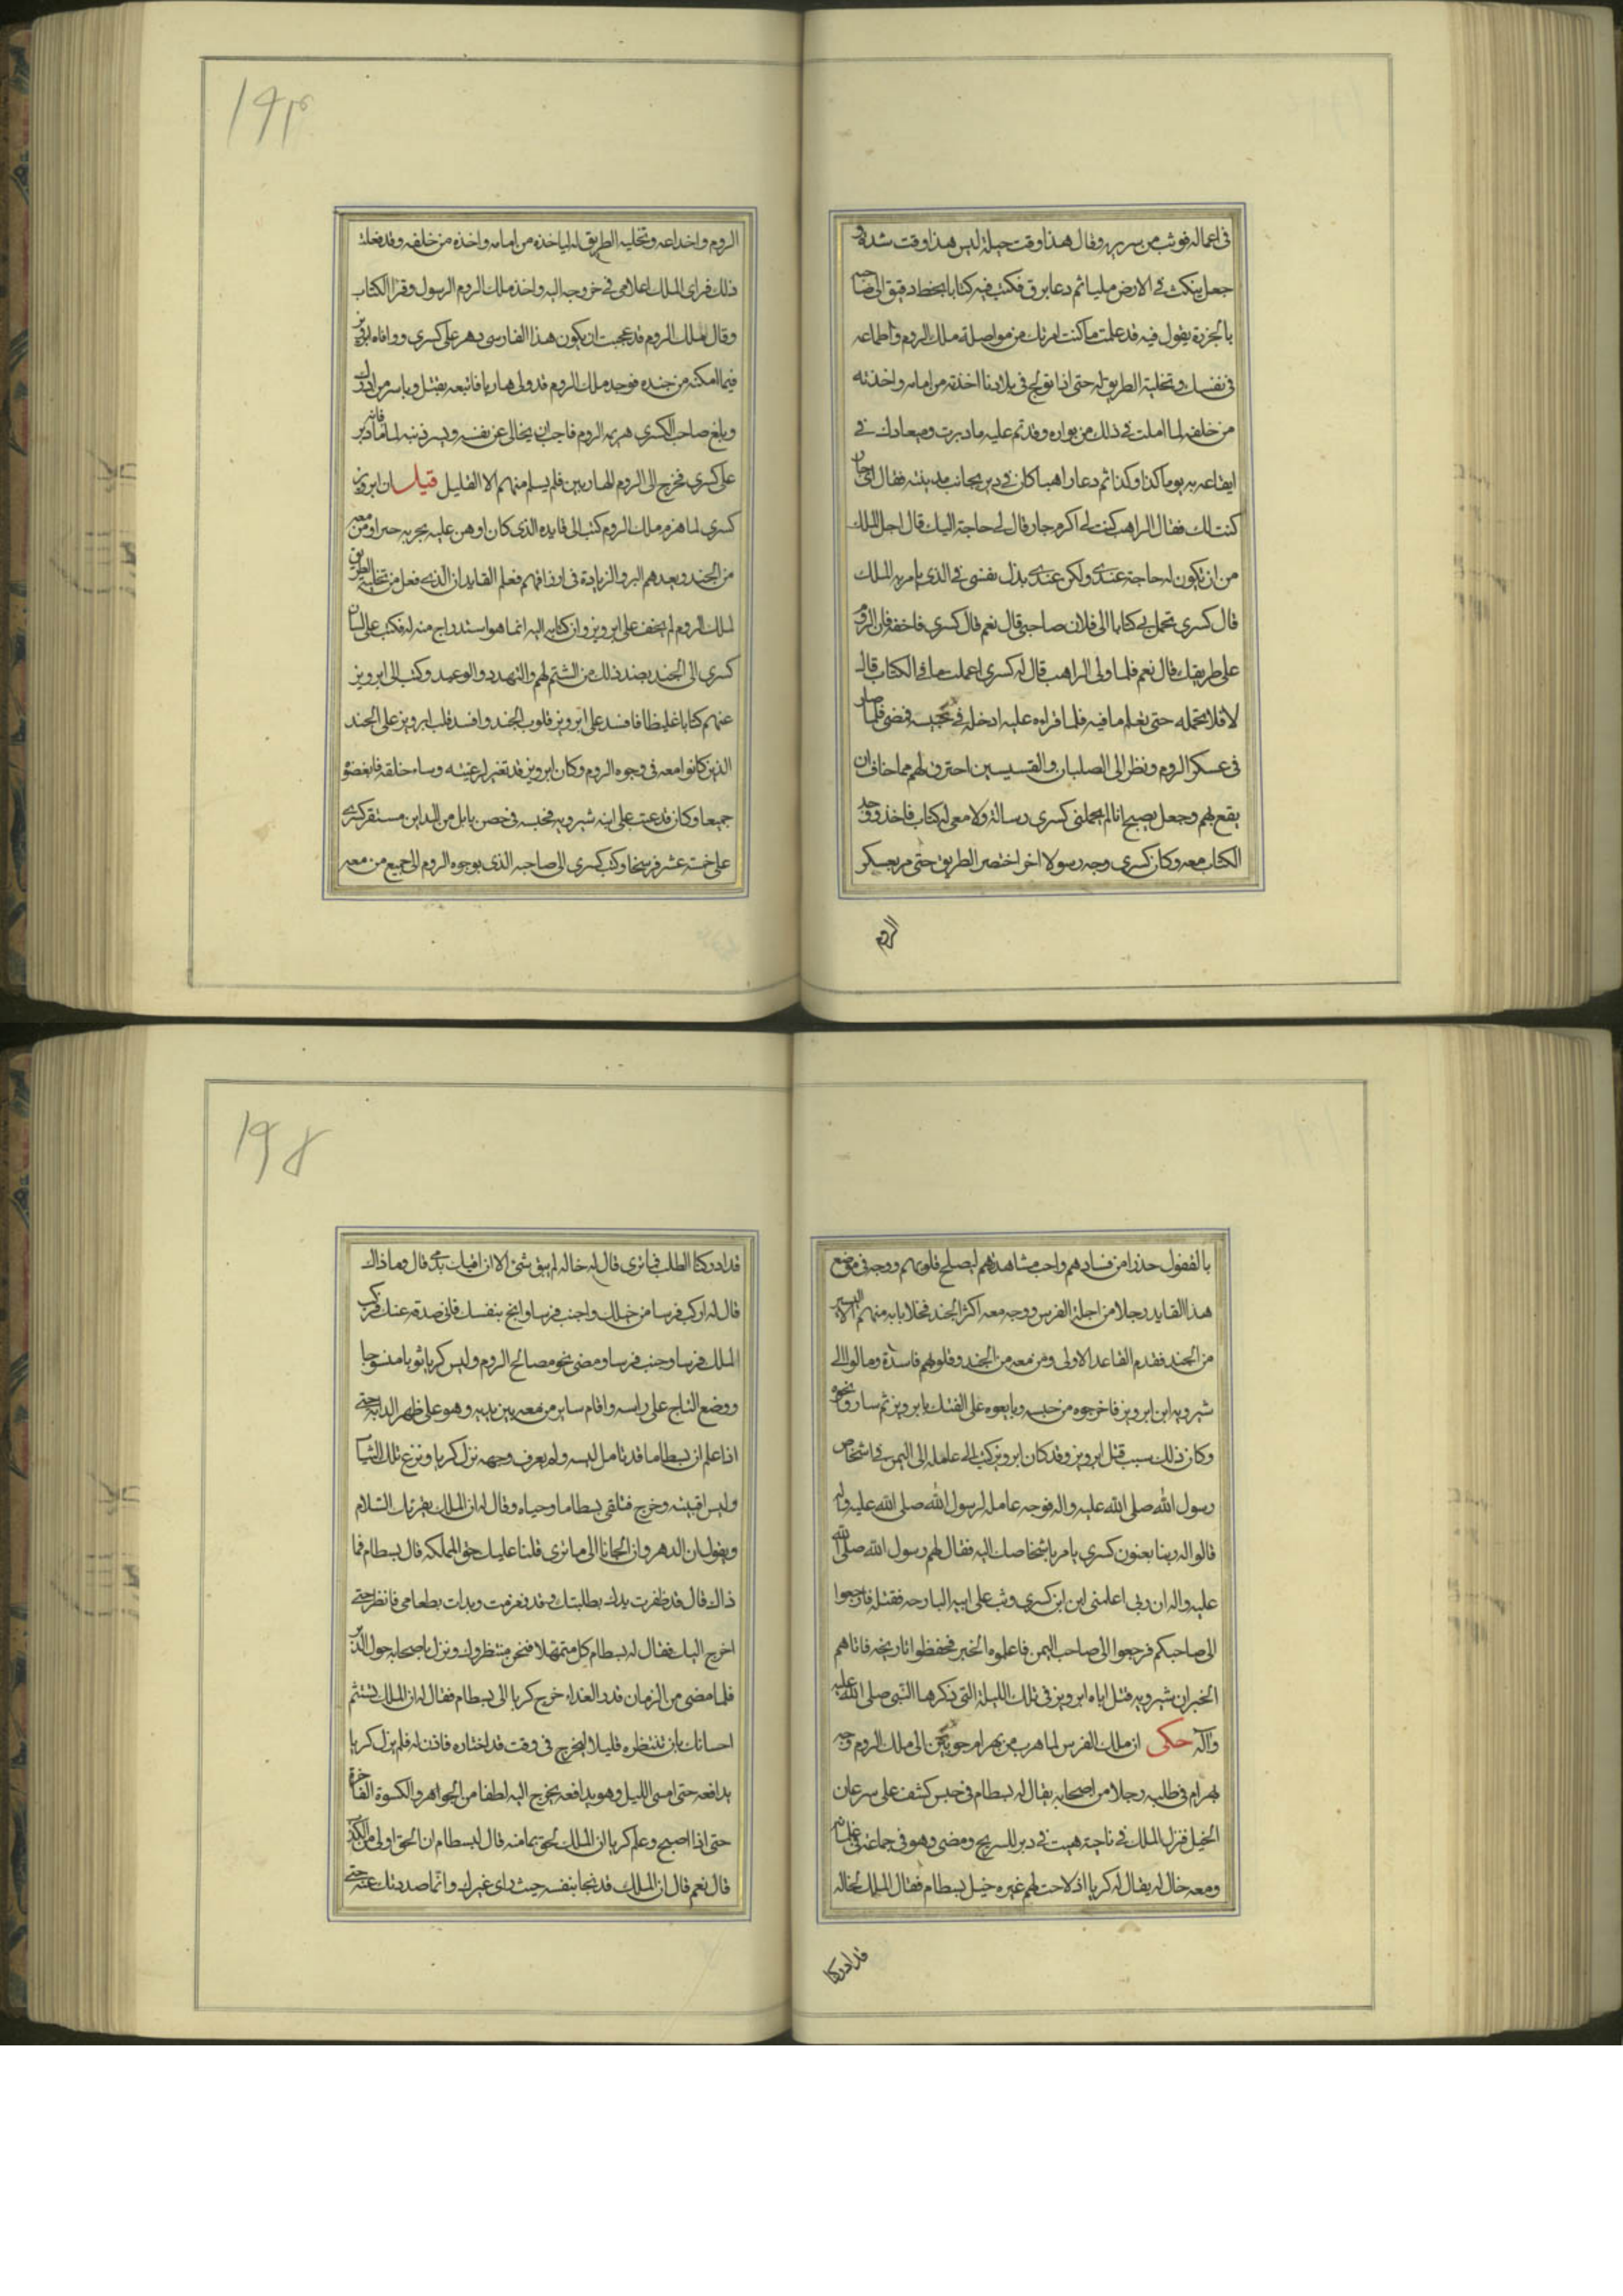 فى اعماله فوثب من سريره وقال هذا وقت حيلة ليس هذا وقت شدة و
جعل ينكث فى الارض مليا ثم دعا برق فكتب فيه كتابا بخط دقيق الى صاحبه
بالجزيرة يقول فيه قد علمت ما كنت امرتك من مواصلة ملك الروم واطماعه
فى نفسك وتخلية الطريق له حتى اذا تولج فى بلادنا اخذته من امامه واخذته
من خلفه لما املت فى ذلك من بواره وقد تم عليه ما دبرت وميعادك فى
ايقاعه به يوما كذا وكذا ثم دعا راهبا كان فى دير بجانب مدينته فقال اى جار
كنت لك فقال الراهب كنت لى اكرم جار قال لى حاجة اليك قال اجل الملك
من ان يكون له حاجة عندى ولكن عندى بذل نفسى فى الذى يامر به الملك
قال كسرى تحمل لى كتابا الى فلان صاحبى قال نعم قال كسرى فاخفه فان الروم
على طريقك قال نعم فلما ولى الراهب قال له كسرى اعلمت ما فى الكتاب قال
لا قال لا تحمله حتى تعلم ما فيه فلما قراه عليه ادخله فى جيبه فمضى فلما صار
فى عسكر الروم ونظر الى الصلبان والقسيسين احترق لهم مما خاف ان
يقع بهم وجعل يصيح انا لم يحملنى كسرى رسالة ولا معى له كتاب فاخذ ووجد
الكتاب معه وكان كسرى وجه رسولا اخر اختصر الطريق حتى مر بعسكر
الروم
١٩٣
الروم واخداعه وتخليه الطريق له لياخذه من امامه واخذه من خلفه وقد فعلت
ذلك فراى الملك اعلامى فى خروجه اليه واخذ ملك الروم الرسول وقرا الكتاب
وقال ملك الروم قد عجبت ان يكون هذا الفارسى دهر على كسرى ووافاه ابرويز
فيما امكنه من جنده فوجد ملك الروم قد ولى هاربا فاتبعه يقتل وياسر من ادرك
وبلغ صاحب الكسرى هزيمه الروم فاحب ان يخالى عن نفسه ويستر ذنبه لما فاته ما دبر
على كسرى فخرج الى الروم الهاربين فلم يسلم منهم الا القليل قيل ان ابرويز
كسرى لما هزم ملك الروم كتب الى قايده الذى كان اوهن عليه يجزيه خيرا ومن معه
من الجند ويعدهم البر والزيادة فى ارزاقهم فعلم القايد ان الذى فعل من تخلية الطريق
لملك الروم لم يخف على ابرويز وان كتابه اليه انما هو استدراج منه له فكتب على لسان
كسرى الى الجند بضد ذلك من الشتم لهم والتهدد والوعيد وكتب الى ابرويز
عنهم كتابا غليظا فافسد على ابرويز قلوب الجند وافسد قلب ابرويز على الجند
الذين كانوا معه فى وجوه الروم وكان ابرويز قد تغير لرعيته وساء خلقه فابغضوه
جميعا وكان قد عتب على ابنه شيرويه فحبسه فى حصن بابل من المداين مستقر كسرى
على خمسة عشر فرسخا وكتب كسرى الى صاحبه الذى بوجوه الروم الى جميع من معه
بالقفول حذرا من فسادهم واحب مشاهدتهم ليصلح قلوبهم ووجه فى موضع
هذا القايد رجلا من اجلة الفرس ووجه معه اكثر الجند فخلا بابه منهم الا اليسير
من الجند فقدم القاعد الاولى ومن معه من الجند وقلوبهم فاسدة ومالوا الى
شيرويه ابن ابرويز فاخرجوه من حبسه وبايعوه على الفتك بابرويز ثم ساروا نحوه
وكان ذلك سبب قتل ابرويز وقد كان ابرويز كتب الى عامله الى اليمن فى اشخاص
رسول الله صلى الله عليه واله فوجه عامله لرسول الله صلى الله عليه واله
قالوا له ربنا يعنون كسرى يامر باشخاصك اليه فقال لهم رسول الله صلى الله
عليه واله ان ربى اعلمنى ابن ابن كسرى وثب على ابيه البارحه فقتله فارجعوا
الى صاحبكم فرجعوا الى صاحب اليمن فاعلموه الخبر فحفظوا تاريخه فاتاهم
الخبر ان شيرويه قتل اباه ابرويز فى تلك الليلة التى ذكرها النبى صلى الله عليه
وآله حكى ان ملك الفرس لما هرب من بهرام جوبين الى ملك الروم وجه
بهرام فى طلبه رجلا من اصحابه يقال له بسطام فى حبس كشف على سرعان
الخيل فنزل الملك فى ناحية هيت فى دير للسريح ومضى وهو فى جماعة فى غلمانه
ومعه خال له يقال له كربا اذ لاحت لهم غبره خيل بسطام فقال الملك لخاله
قد ادركنا
١٩٤
قد ادركنا الطلب فما ترى قال له خاله لم يبق شئ الا ان افيك بدمى قال وما ذاك
قال له اركب فرسا من خيلك واجنب فرسا وانج بنفسك فانى صدقه عنك فركب
الملك فرسا وجنب فرسا ومضى نحو مصالح الروم ولبس كربا ثوبا منسوجا
ووضع التاج على راسه واقام ساير من معه بين يديه وهو على ظهر الدابة حتى
اذا علم ان بسطاما قد تامل لبسه ولم يعرف وجهه نزل كربا ونزع تلك الثياب
ولبس اقبيته وخرج فتلقى بسطاما وحياه وقال له ان الملك يقرئك السلام
ويقول ان الدهر وان الجانا الى ما ترى فلنا عليك حق المملكة قال بسطام فما
ذاك قال قد ظفرت يدك بطلبتك وقد نعزمت وبدات بطعامى فانظر حتى
اخرج اليك فقال له بسطام كل متمهلا فنحن منتظروك ونزل باصحابه حول الدير
فلما مضى من الزمان قدر الغداء خرج كربا الى بسطام فقال له ان الملك يستتم
احسانك بان تنتظره قليلا ليخرج فى وقت قد اختاره فاذن له فلم يزل كربا
يدافعه حتى امسى الليل وهو يدافعه يخرج اليه لطفا من الجواهر والكسوة الفاخرة
حتى اذا اصبح وعلم كربا ان الملك لحق بمامنه قال لبسطام ان الحق اولى من الكذب
قال نعم قال ان الملك قد نجا بنفسه حيث راى غيرك وانما صددتك عنه حتى